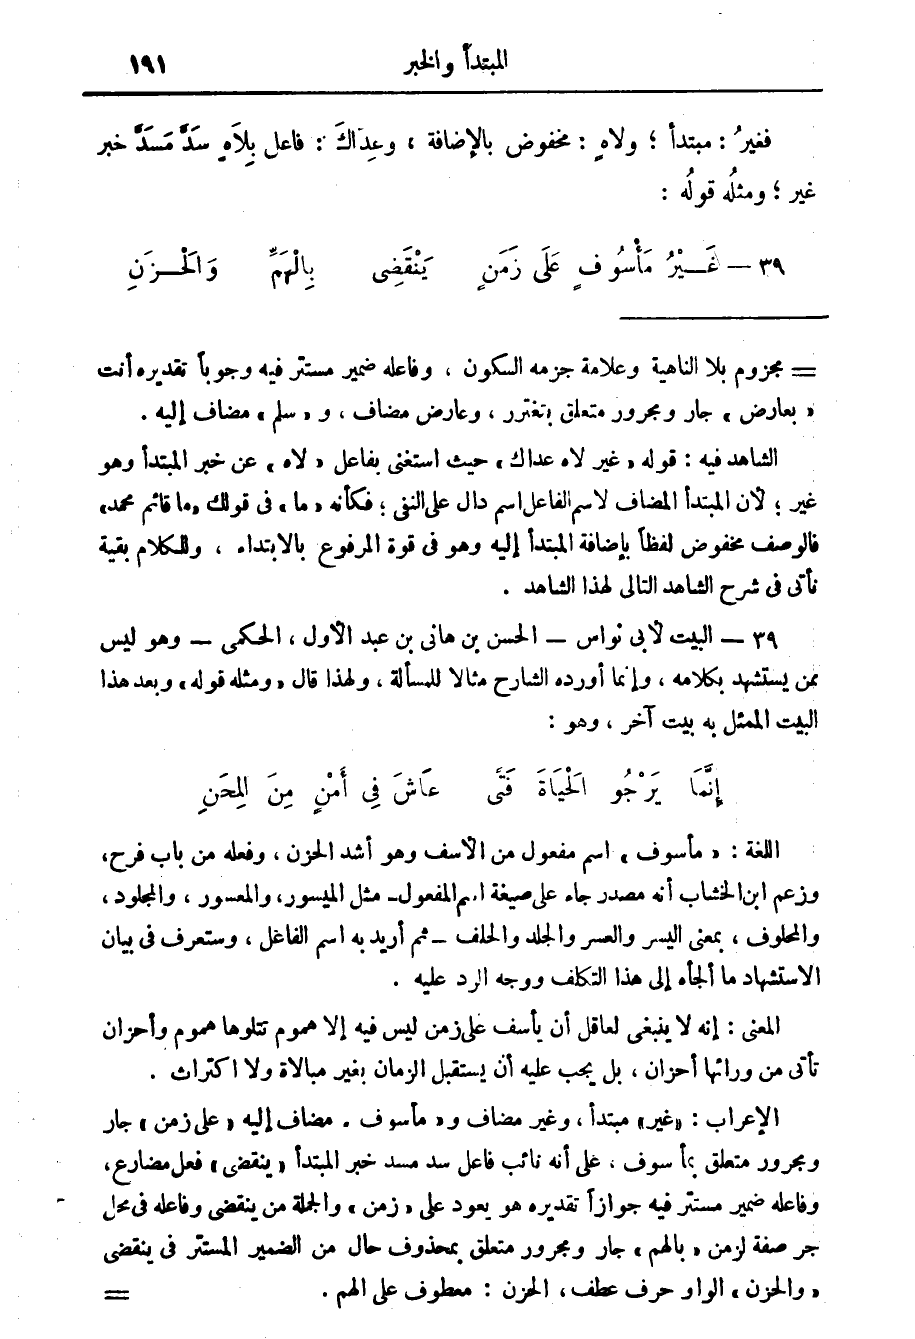 المبتدأ والخبر ١٩١
فغيرُ : مبتدأ ؛ ولاهٍ : مخفوض بالإضافة ، وعِدَاكَ : فاعل بِلَاهٍ سَدَّ مَسَدَّ خبر
غير ؛ ومثلُه قولُه :
٣٩ — غَـــيْرُ مَأْسُوفٍ عَلَى زَمَنٍ يَنْقَضِى بِالْهَمِّ وَالْحَـــزَنِ
= مجزوم بلا الناهية وعلامة جزمه السكون ، وفاعله ضمير مستتر فيه وجوباً تقديره أنت
« بعارض » جار ومجرور متعلق بتغترر ، وعارض مضاف ، و « سلم » مضاف إليه .
الشاهد فيه : قوله « غير لاه عداك » حيث استغنى بفاعل « لاه » عن خبر المبتدأ وهو
غير ؛ لأن المبتدأ المضاف لاسم الفاعل اسم دال على النفى ؛ فكأنه « ما » فى قولك « ما قائم محمد »
فالوصف مخفوض لفظاً بإضافة المبتدأ إليه وهو فى قوة المرفوع بالابتداء ، وللكلام بقية
نأتى فى شرح الشاهد التالى لهذا الشاهد .
٣٩ — البيت لأبى نواس — الحسن بن هانى بن عبد الأول ، الحكمى — وهو ليس
ممن يستشهد بكلامه ، وإنما أورده الشارح مثالا للمسألة ، ولهذا قال « ومثله قوله » وبعد هذا
البيت الممثل به بيت آخر ، وهو :
إِنَّمَا يَرْجُو الْحَيَاةَ فَتًى عَاشَ فِى أَمْنٍ مِنَ الْمِحَنِ
اللغة : « مأسوف » اسم مفعول من الأسف وهو أشد الحزن ، وفعله من باب فرح،
وزعم ابن الخشاب أنه مصدر جاء على صيغة اسم المفعول ـ مثل الميسور، والمعسور ، والمجلود ،
والمحلوف ، بمعنى اليسر والعسر والجلد والحلف ـ ثم أريد به اسم الفاعل ، وستعرف فى بيان
الاستشهاد ما ألجأه إلى هذا التكلف ووجه الرد عليه .
المعنى : إنه لا ينبغى لعاقل أن يأسف على زمن ليس فيه إلا هموم تتلوها هموم وأحزان
تأتى من ورائها أحزان ، بل يجب عليه أن يستقبل الزمان بغير مبالاة ولا اكتراث .
الإعراب : «غير» مبتدأ ، وغير مضاف و « مأسوف » مضاف إليه « على زمن » جار
ومجرور متعلق بمأسوف ، على أنه نائب فاعل سد مسد خبر المبتدأ « ينقضى » فعل مضارع،
وفاعله ضمير مستتر فيه جوازاً تقديره هو يعود على « زمن » والجملة من ينقضى وفاعله فى محل
جر صفة لزمن « بالهم » جار ومجرور متعلق بمحذوف حال من الضمير المستتر فى ينقضى
« والحزن » الواو حرف عطف ، الحزن : معطوف على الهم . =